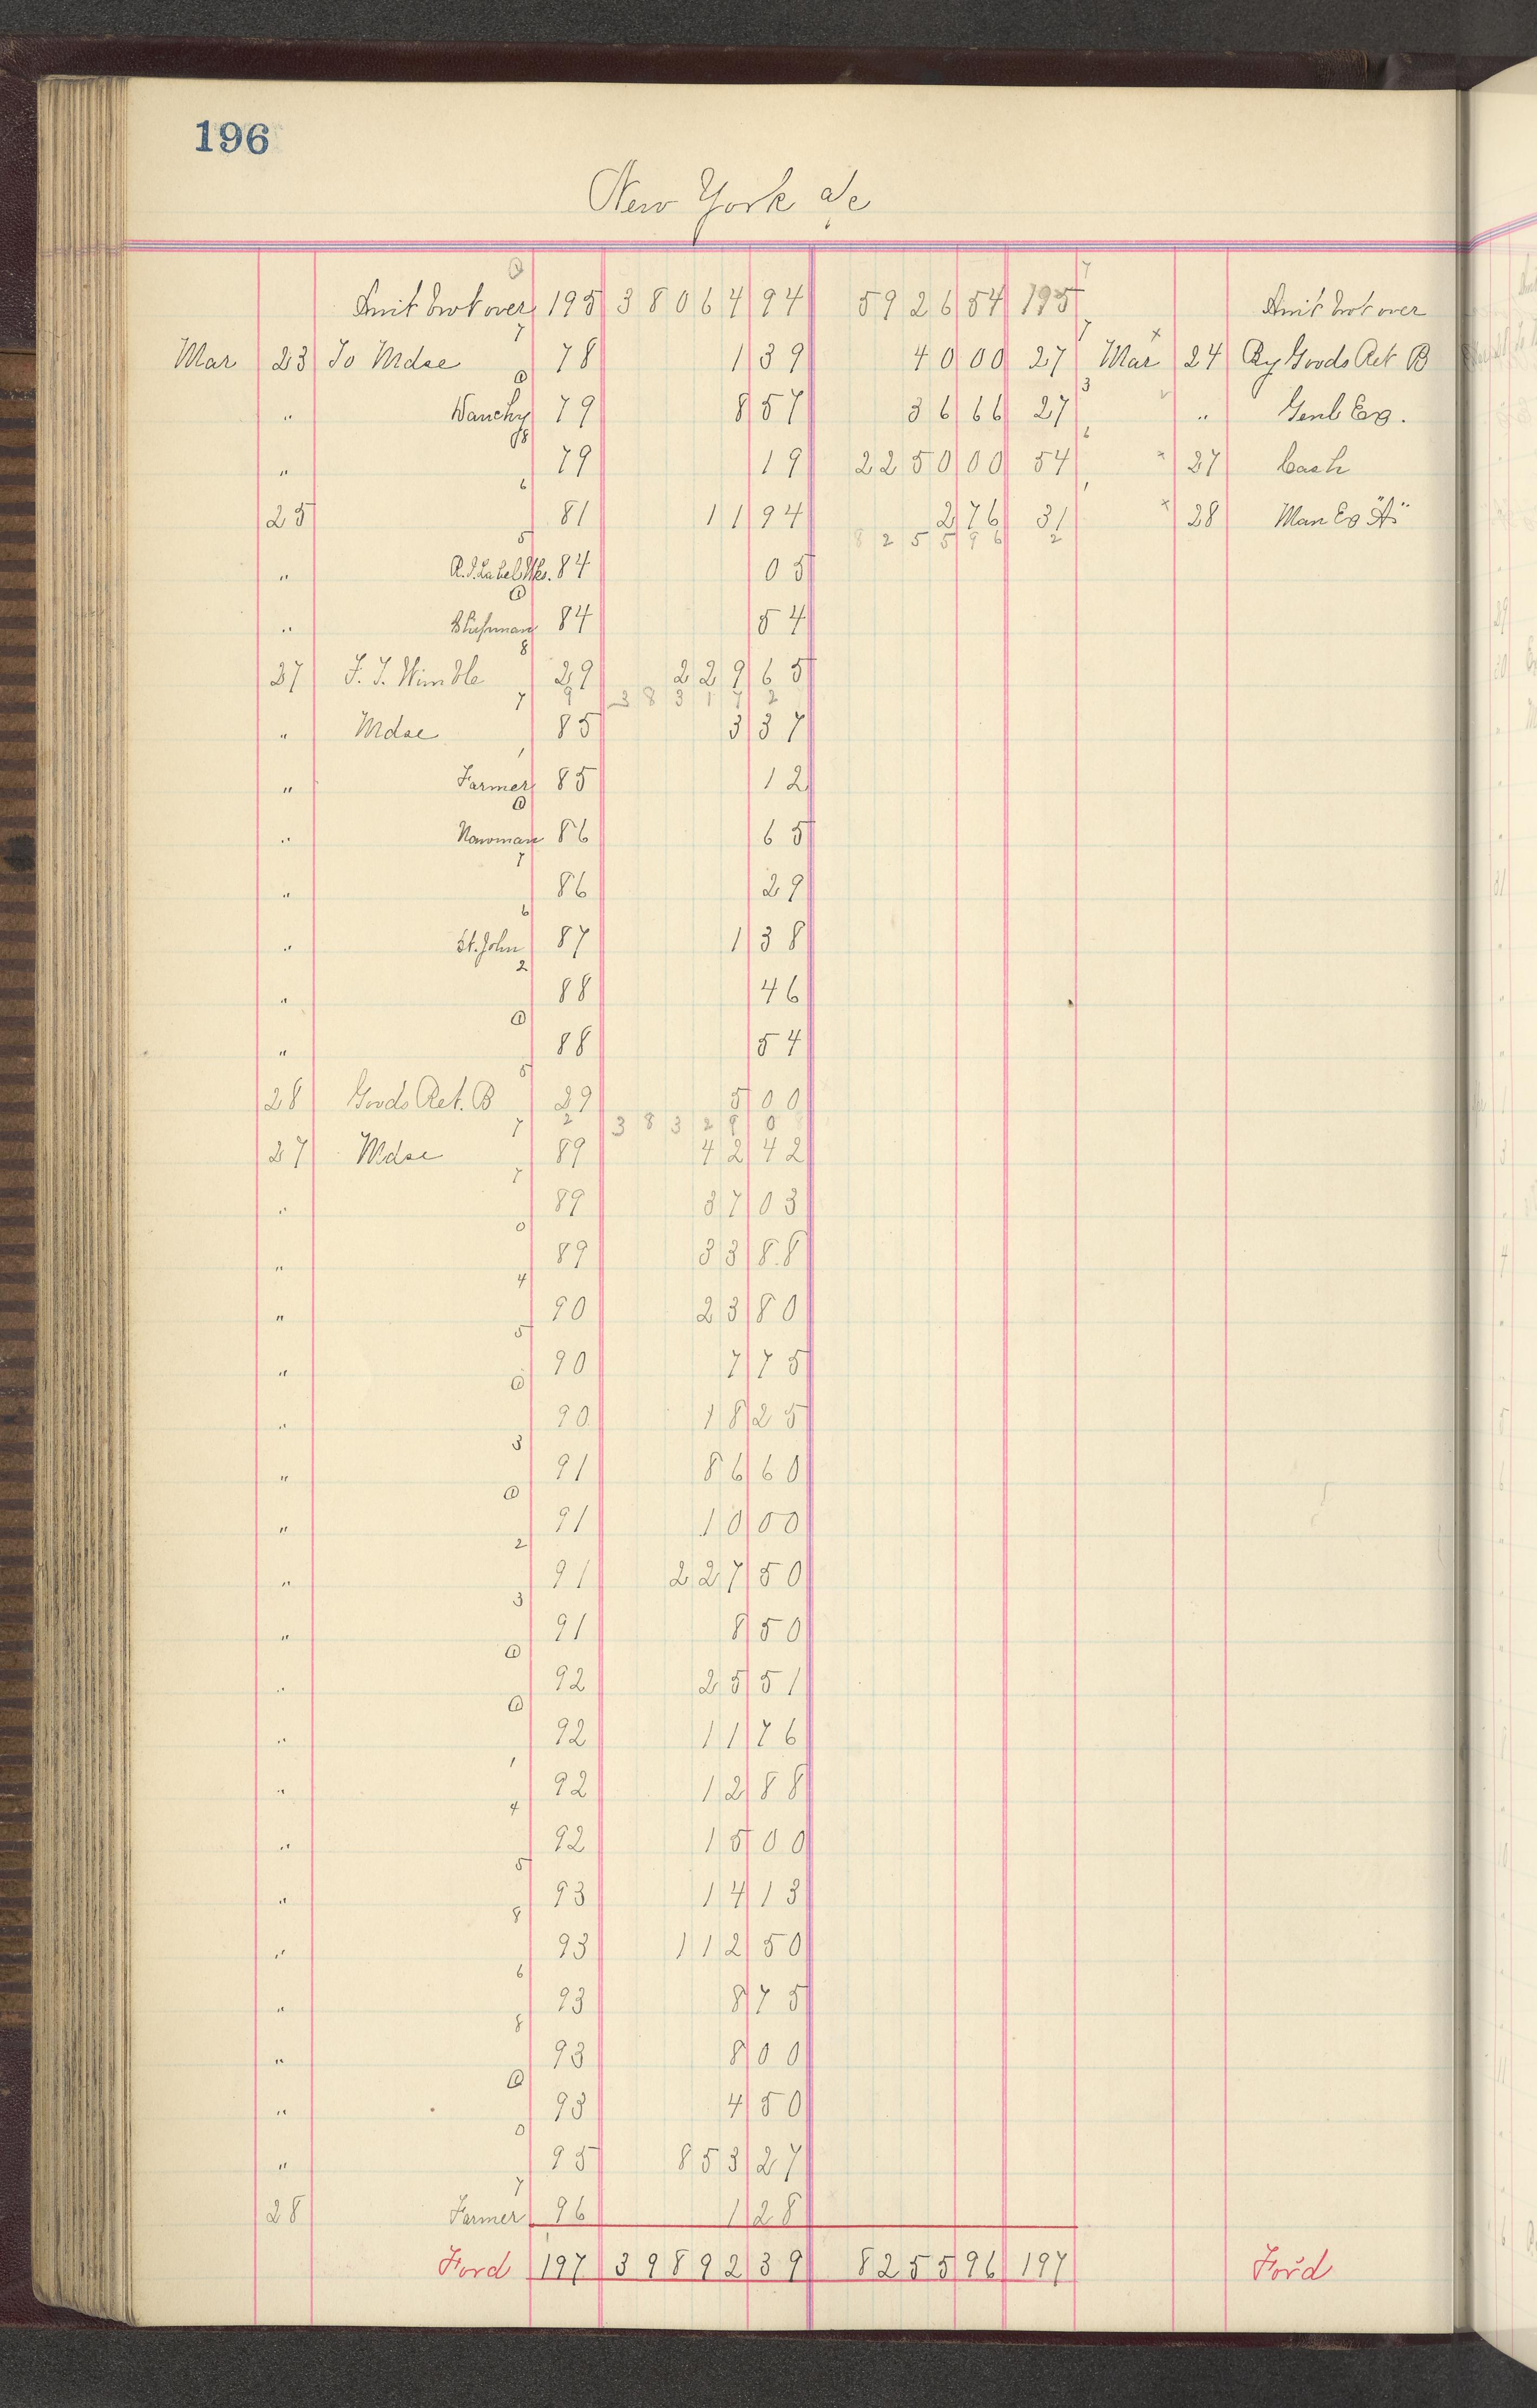 196
New York a/c
Amt brot over 195 38064 94 5926 54 195 Amt brot over
Mar 23 To Mdse 78 1 39 40 00 27 Mar 24 By Goods Ret B
" 79 8 57 36 66 27 " Genl Ex.
" 79 19 2250 00 54 27 Cash
25 81 11 94 2 76 31 28 Man Ex "A"
8255 96
" 84 05
" 84 54
27 F. J. Wimble 29 229 65
3831 7 2
" Mdse 85 3 37
" Farmer 85 12
" Newman 86 65
" 86 29
" St. John 87 1 38
" 88 46
" 88 54
28 Goods Ret. B 29 5 00
3832 9 0
27 Mdse 89 42 42
" 89 37 03
" 89 33 88
" 90 23 80
" 90 7 75
" 90 18 25
" 91 86 60
" 91 10 00
" 91 227 50
" 91 8 50
" 92 25 51
" 92 11 76
" 92 12 88
" 92 15 00
" 93 14 13
" 93 112 50
" 93 8 75
" 93 8 00
" 93 4 50
" 95 853 27
28 Farmer 96 1 28
Ford 197 39892 39 8255 96 197 Ford